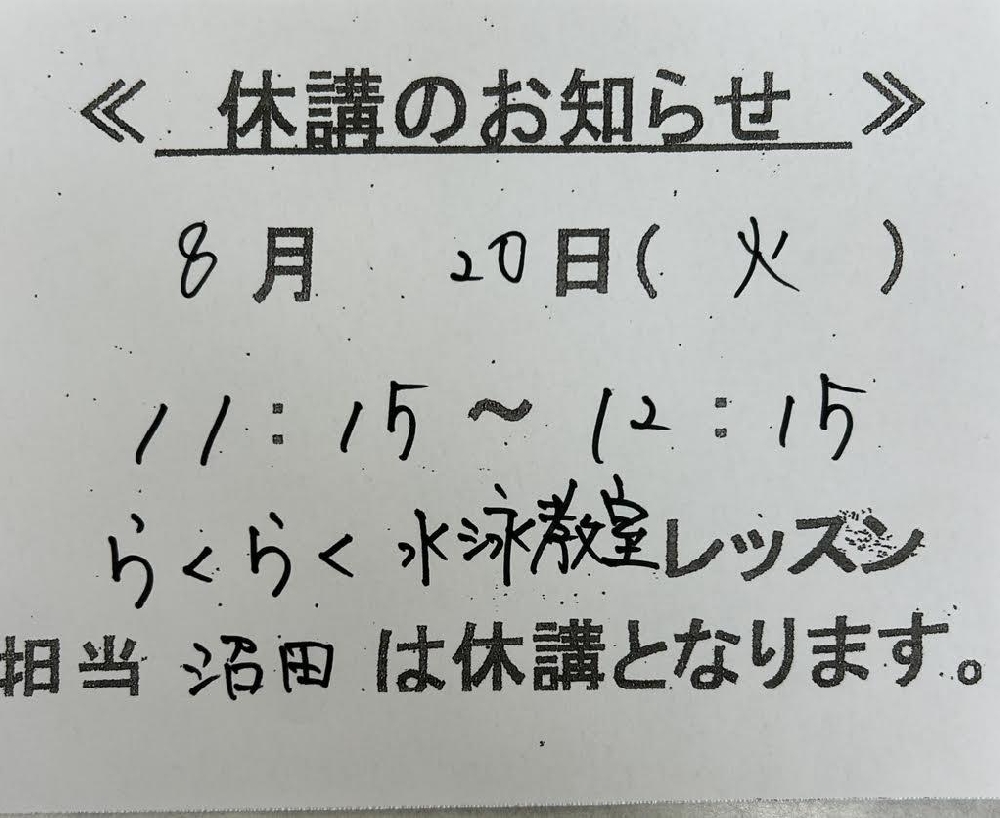 ≪ 休講のお知らせ ≫
8月 20日( 火 )
11:15～12:15
らくらく水泳教室レッスン
担当 沼田 は休講となります。